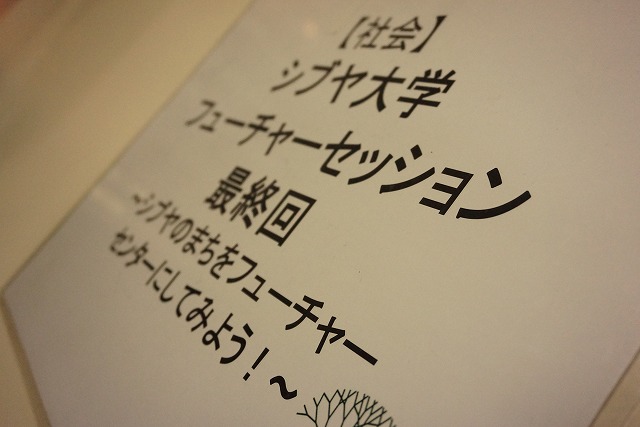 【社会】
シブヤ大学
フューチャーセッション
最終回
~シブヤのまちをフューチャー
センターにしてみよう！~